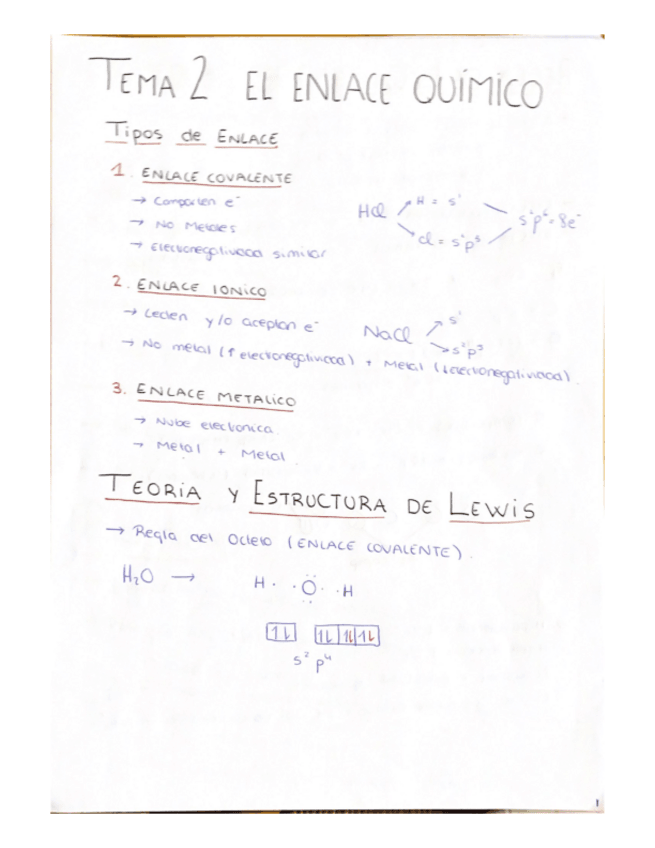 TEMA 2 EL ENLACE QUÍMICO
Tipos de ENLACE
1. ENLACE COVALENTE
→ Comparten e⁻
→ No Metales
→ Electronegatividad similar
HCl
H = s¹
Cl = s²p⁵
s²p⁶ = 8e⁻
2. ENLACE IONICO
→ Ceden y/o aceptan e⁻
→ No metal (↑ electronegatividad) + Metal (↓ electronegatividad)
NaCl
s¹
s²p⁵
3. ENLACE METALICO
→ Nube electronica
→ Metal + Metal
TEORIA Y ESTRUCTURA DE LEWIS
→ Regla del Octeto (ENLACE COVALENTE).
H₂O → H · · O · · H
s² p⁴
1